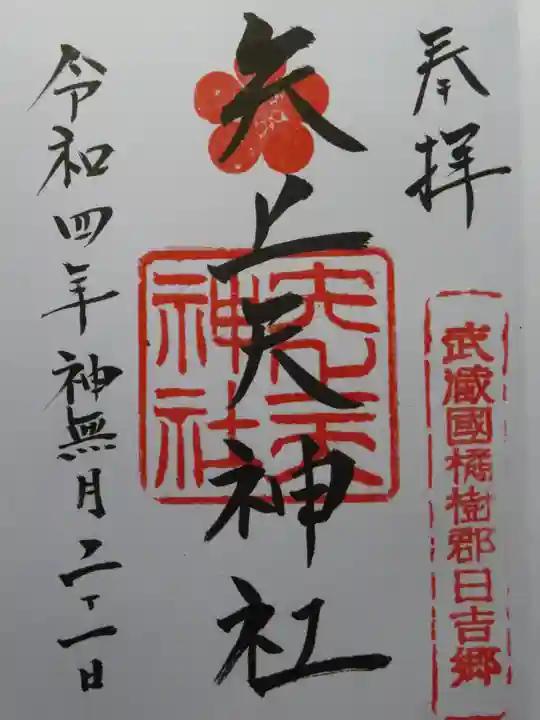 奉拝
武蔵國橘樹郡日吉郷
矢上天神社
神社
令和四年神無月二十一日